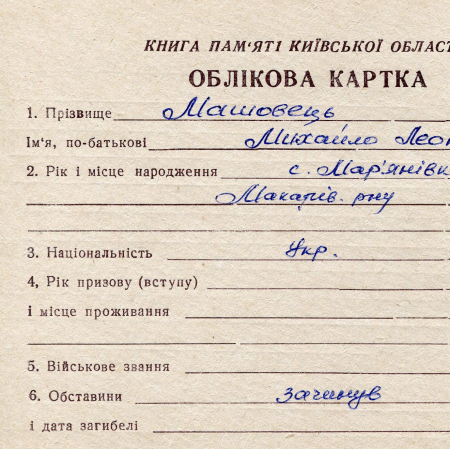 КНИГА ПАМ'ЯТІ КИЇВСЬКОЇ ОБЛАСТ
ОБЛІКОВА КАРТКА
1. Прізвище Машовець
Ім'я, по-батькові Михайло Леон
2. Рік і місце народження с. Мар'янівк
Макарів. рну
3. Національність Укр.
4, Рік призову (вступу)
і місце проживання
5. Військове звання
6. Обставини загинув
і дата загибелі